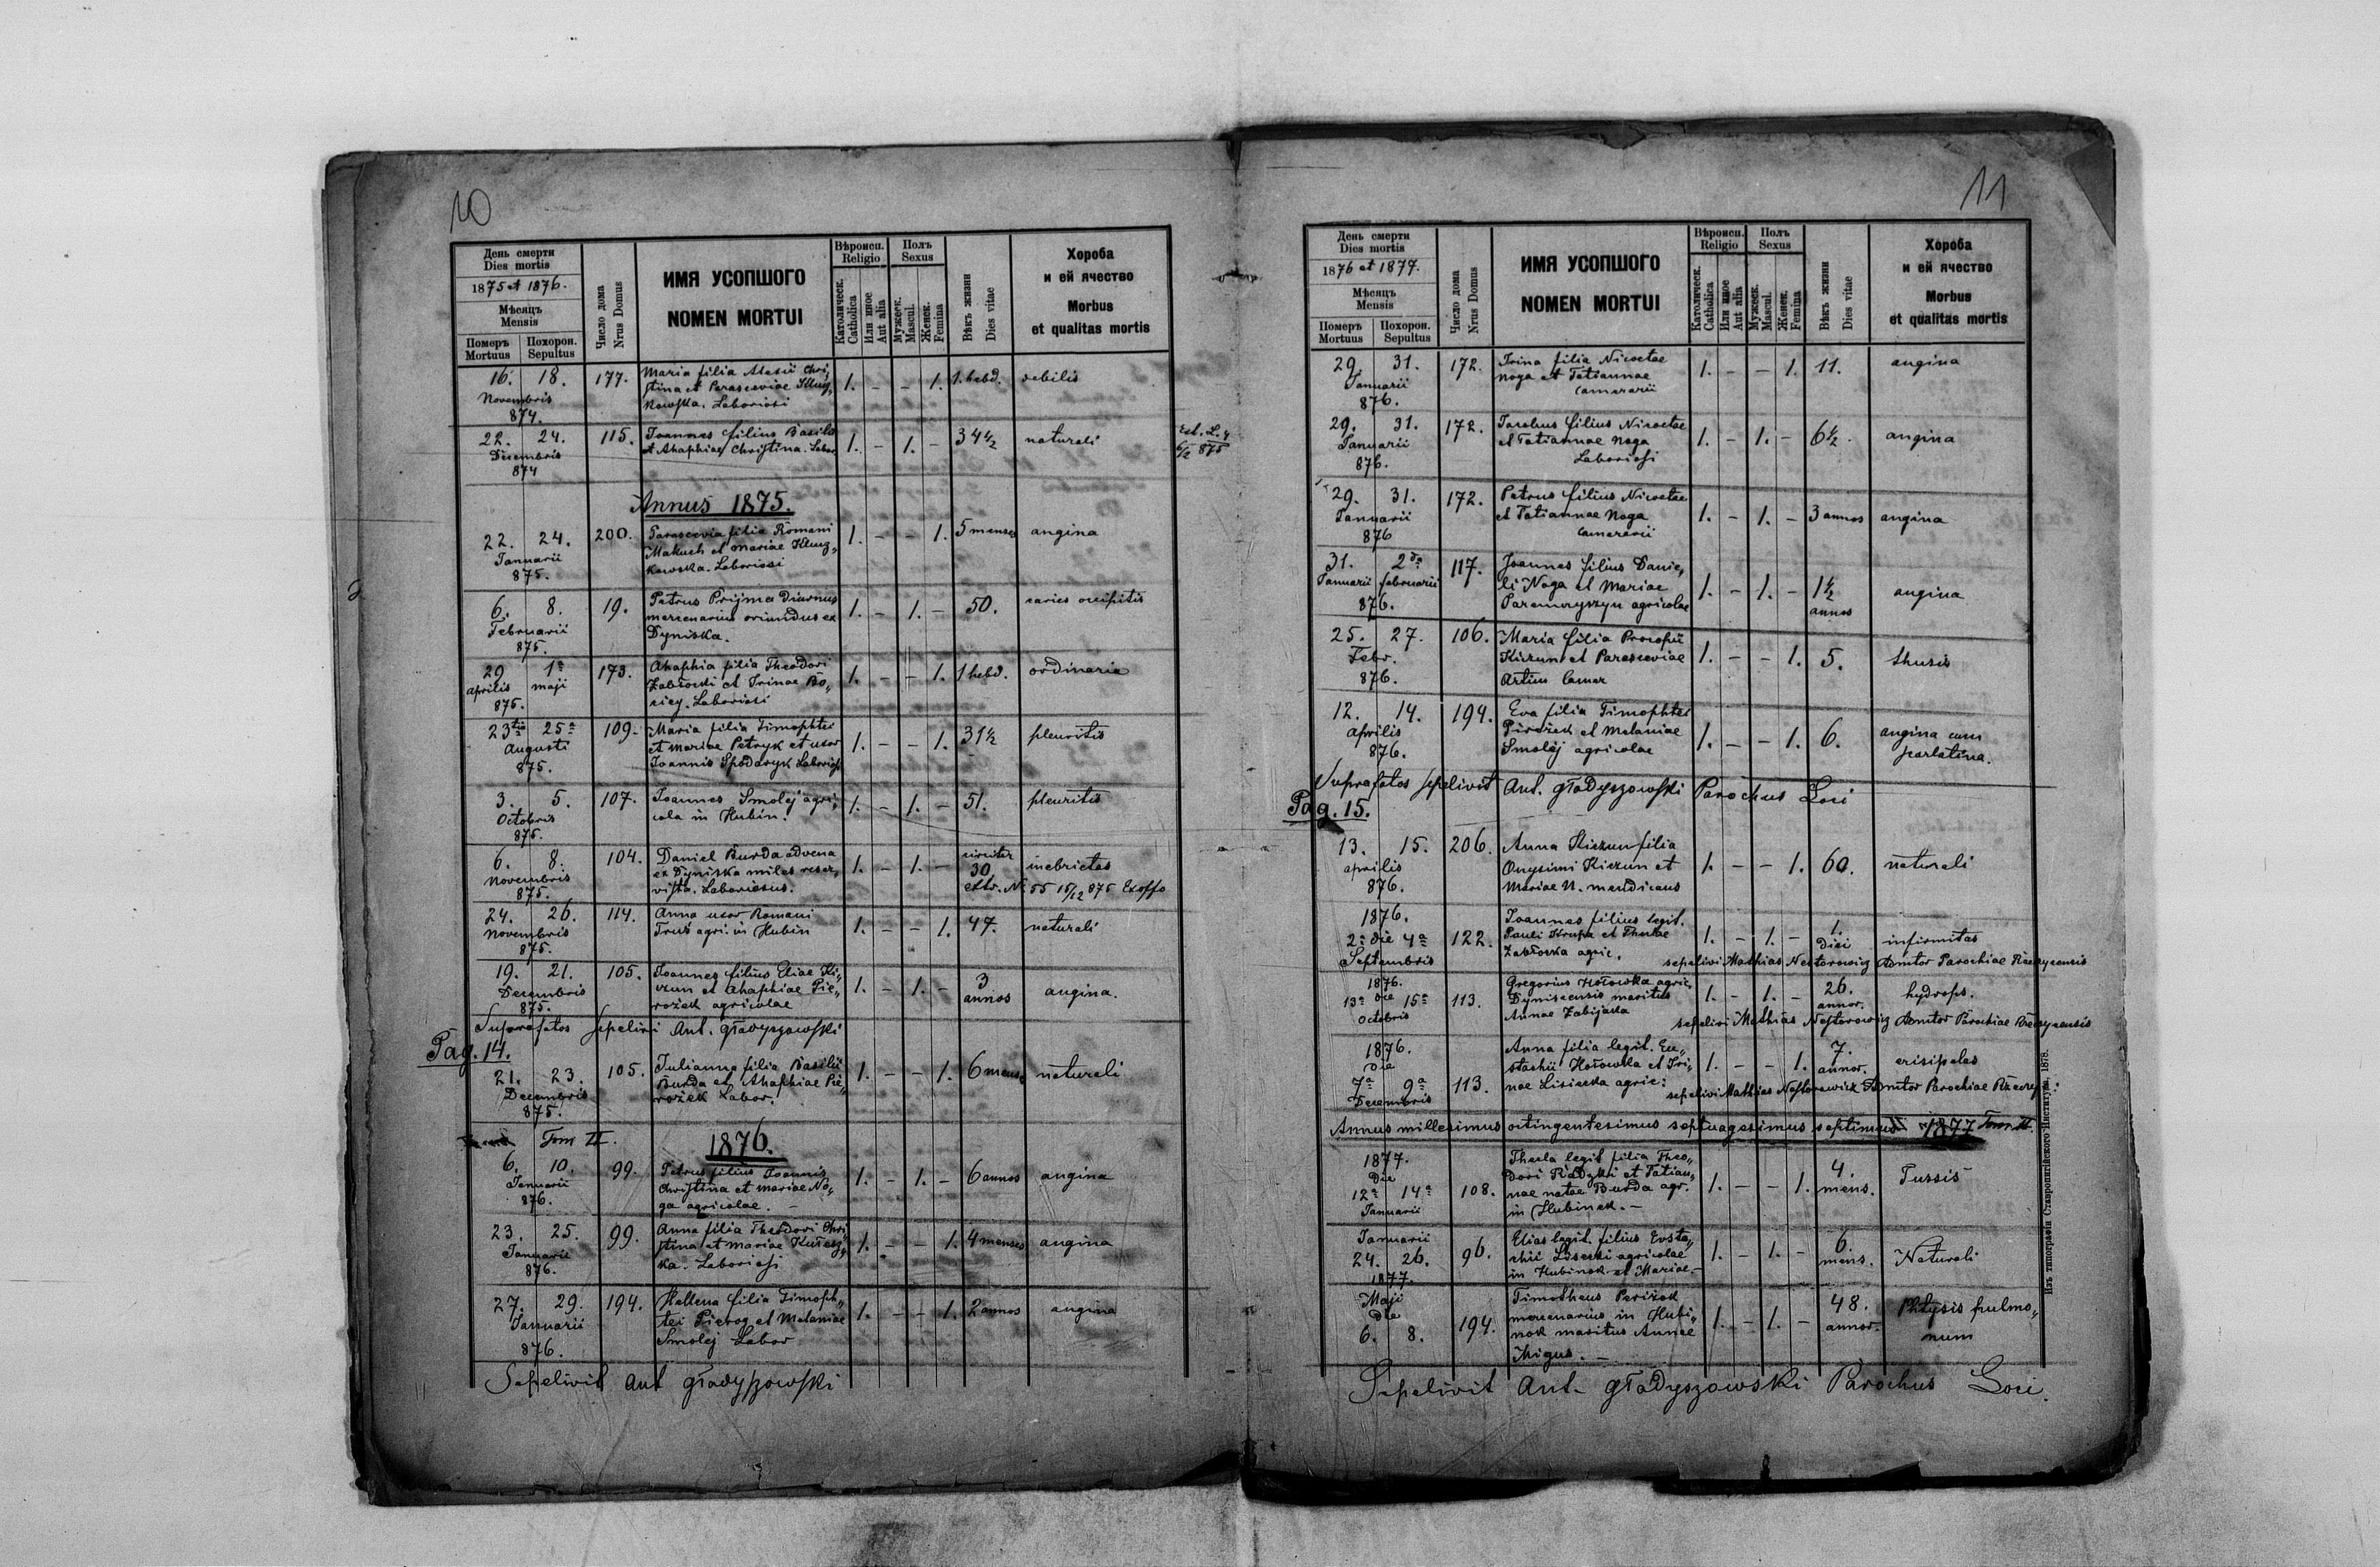 10
День смерти
Dies mortis
1875 et 1876.
Мѣсяцъ
Mensis
Померъ
Mortuus
Похорон.
Sepultus
Число дома
Nrus Domus
ИМЯ УСОПШОГО
NOMEN MORTUI
Вѣроисп.
Religio
Католическ.
Catholica
Или иное
Aut alia
Полъ
Sexus
Мужеск.
Mascul.
Женск.
Femina
Вѣкъ жизни
Dies vitae
Хороба
и ей ячество
Morbus
et qualitas mortis
16. 18. 177. Maria filia Alexii Chri„ 1. - - 1. 1. hebd. debilis
Novembris stina et Parasceviae
874. kowska. Laboriosi
22. 24. 115. Joannes filius Basilii 1. - 1. - 34½ naturali
Decembris et Ahaphiae Christina. Labor
874
Ext. L. 4
6/2 875
Annus 1875.
22. 24. 200. Parascevia filia Romani 1. - - 1. 5 menses angina
Januarii Makuch et Mariae Klusz„
875. kowska. Laboriosi
6. 8. 19. Petrus Prijma Diurnus 1. - 1. - 50. caries occipitis
Februarii mercenarius oriundus ex
875. Dyniska.
29 1a 173. Ahaphia filia Theodori 1. - - 1. 1 hebd. ordinaria
aprilis maji Zabłocki et Irinae Bo„
875. riey. Laboriosi
23tia 25a 109. Maria filia Timophtei 1. - - 1. 31½ pleuritis
Augusti et Mariae Petryk et uxor
875. Joannis Spodaryk Laboriosi
3. 5. 107. Joannes Smolej agri„ 1. - 1. - 51. pleuritis
Octobris cola in Hubin.
875.
6. 8. 104. Daniel Burda advena 1. - 1. - circiter inebrietas
Novembris ex Dyniska miles reser„ 30
875. vista. Laboriosus. extr. N. 55 15/12 875 Exoffo
24. 26. 114. Anna uxor Romani 1. - - 1. 47. naturali
Novembris Truś agri. in Hubin
875.
19. 21. 105. Joannes filius Eliae Ki„ 1. - 1. - 3 angina.
Decembris czun et Ahaphiae Pie„ annos
875. rożek agricolae
Suprafatos sepelivi Ant. Gładyszowski
Pag. 14.
21. 23. 105. Julianna filia Basilii 1. - - 1. 6 mens. naturali
Decembris Burda et Ahaphiae Pie„
875. rożek Labor.
Tom II. 1876.
6. 10. 99. Petrus filius Joannis 1. - 1. - 6 annos angina
Januarii Christina et Mariae No„
876. ga agricolae. -
23. 25. 99. Anna filia Theodori Chri„ 1. - - 1. 4 menses angina
Januarii stina et Mariae
876. ka. Laboriosi
27. 29. 194. Hellena filia Timoph„ 1. - - 1. 2 annos angina
Januarii tei Pierog et Melaniae
876. Smolej Labor
Sepelivit Ant Gładyszowski
11
День смерти
Dies mortis
1876 et 1877.
Мѣсяцъ
Mensis
Померъ
Mortuus
Похорон.
Sepultus
Число дома
Nrus Domus
ИМЯ УСОПШОГО
NOMEN MORTUI
Вѣроисп.
Religio
Католическ.
Catholica
Или иное
Aut alia
Полъ
Sexus
Мужеск.
Mascul.
Женск.
Femina
Вѣкъ жизни
Dies vitae
Хороба
и ей ячество
Morbus
et qualitas mortis
29. 31. 172. Irina filia Nicetae 1. - - 1. 11. angina
Januarii Noga et Tatiannae
876. camerarii
29. 31. 172. Jacobus filius Nicetae 1. - 1. - 6½. angina
Januarii et Tatiannae Noga
876. Laboriosi
29. 31. 172. Petrus filius Nicetae 1. - 1. - 3 annos angina
Januarii et Tatiannae Noga
876 camerarii
31. 2da 117. Joannes filius Danie„ 1. - 1. - 1½ angina
Januarii februarii li Noga et Mariae annos
876. agricolae
25. 27. 106. Maria filia Procopii 1. - - 1. 5. thusis
Febr. Kiczun et Parasceviae
876. Artim Camer
12. 14. 194. Eva filia Timophtei 1. - - 1. 6. angina cum
aprilis Pirożek et Melaniae scarlatina.
876. Smolej agricolae
Suprafatos sepelivit Ant. Gładyszowski Parochus Loci
Pag. 15.
13. 15. 206. Anna Kiczun filia 1. - - 1. 60. naturali
aprilis Onysimi Kiczun et
876. Mariae N. mendicans
1876. Joannes filius legit. 1.
2a die 4a 122. Pauli Krupa et Theclae 1. - 1. - Diei infirmitas
Septembris Zabłocka agric.
sepelivi Mathias Nestorowicz Admtor Parochiae Rzeczycensis
1876. Gregorius Hołowka agric. 26. hydrops.
13a die 15a 113. Dyniscensis maritus 1. - 1. - annor.
Octobris Annae Zabijacka
sepelivi Mathias Nestorowicz Admtor Parochiae Rzeczycensis
1876. Anna filia legit. Eu„ 7. erisipelas
Die stachii Hołowka et Iri„ 1. - - 1. annor.
7a 9a 113. nae Lisiecka agric:
Decembris sepelivi Mathias Nestorowicz Admtor Parochiae Rzeczyc:
Annus millesimus octingentesimus septuagesimus septimus 1877 Tom II.
1877. Thecla legit filia Theo„ 4. Tussis
Die dori Radzyki et Tatian„ 1. - - 1. mens.
12a 14a 108. nae natae Burda agr.
Januarii in Hubinek. -
Januarii Elias legit. filius Eusta„ 6.
24. 26. 96. chii Lisecki agricolae 1. - 1. - mens. Naturali
1877. in Hubinek et Mariae. -
Maji Timotheus Perizok 48. Phtysis pulmo„
Die mercenarius in Hubi„ 1. - 1. - annor. num
6. 8. 194. nek maritus Annae
Migus. -
Sepelivit Ant. Gładyszowski Parochus Loci.
Изъ типографіи Ставропигійского Института, 1878.